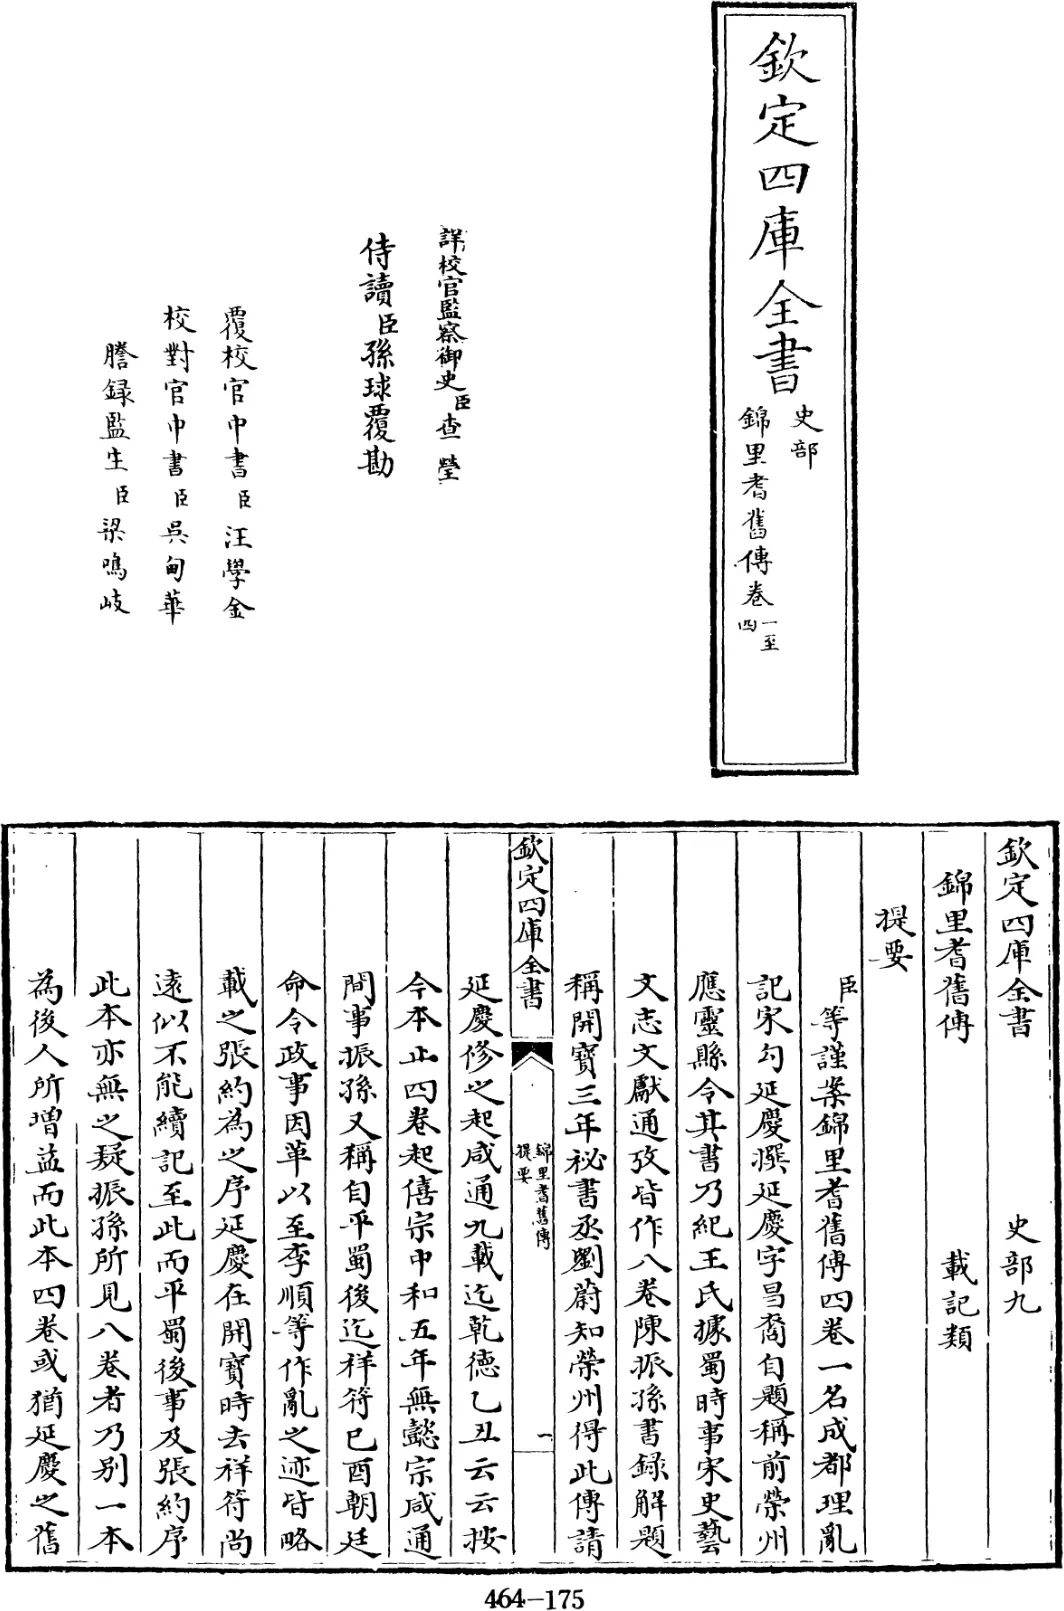 欽定四庫全書
史部
錦里耆舊傳卷一至四
詳校官監察御史臣查瑩
侍讀臣孫球覆勘
覆校官中書臣汪學金
校對官中書臣吳甸華
謄録監生臣梁鳴岐
欽定四庫全書 史部九
錦里耆舊傳 載記類
提要
臣等謹案錦里耆舊傳四卷一名成都理亂
記宋勾延慶撰延慶字昌裔自題稱前榮州
應靈縣令其書乃紀王氏據蜀時事宋史藝
文志文獻通攷皆作八卷陳振孫書録解題
稱開寳三年祕書丞劉蔚知榮州得此傳請
欽定四庫全書
錦里耆舊傳
提要
一
延慶修之起咸通九載迄乾德乙丑云云按
今本止四卷起僖宗中和五年無懿宗咸通
間事振孫又稱自平蜀後迄祥符己酉朝廷
命令政事因革以至李順等作亂之迹皆略
載之張約為之序延慶在開寳時去祥符尚
遠似不能續記至此而平蜀後事及張約序
此本亦無之疑振孫所見八卷者乃别一本
為後人所增益而此本四卷或猶延慶之舊
464-175